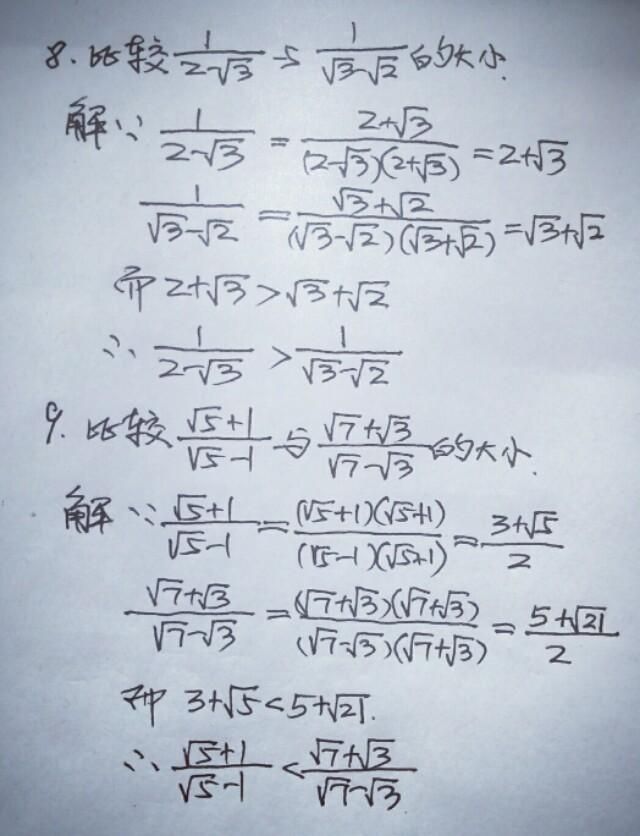 8. 比较 1/(2-√3) 与 1/(√3-√2) 的大小.
解∵ 1/(2-√3) = (2+√3)/((2-√3)(2+√3)) = 2+√3
1/(√3-√2) = (√3+√2)/((√3-√2)(√3+√2)) = √3+√2
而 2+√3 > √3+√2
∴ 1/(2-√3) > 1/(√3-√2)
9. 比较 (√5+1)/(√5-1) 与 (√7+√3)/(√7-√3) 的大小.
解∵ (√5+1)/(√5-1) = ((√5+1)(√5+1))/((√5-1)(√5+1)) = (3+√5)/2
(√7+√3)/(√7-√3) = ((√7+√3)(√7+√3))/((√7-√3)(√7+√3)) = (5+√21)/2
而 3+√5 < 5+√21.
∴ (√5+1)/(√5-1) < (√7+√3)/(√7-√3)